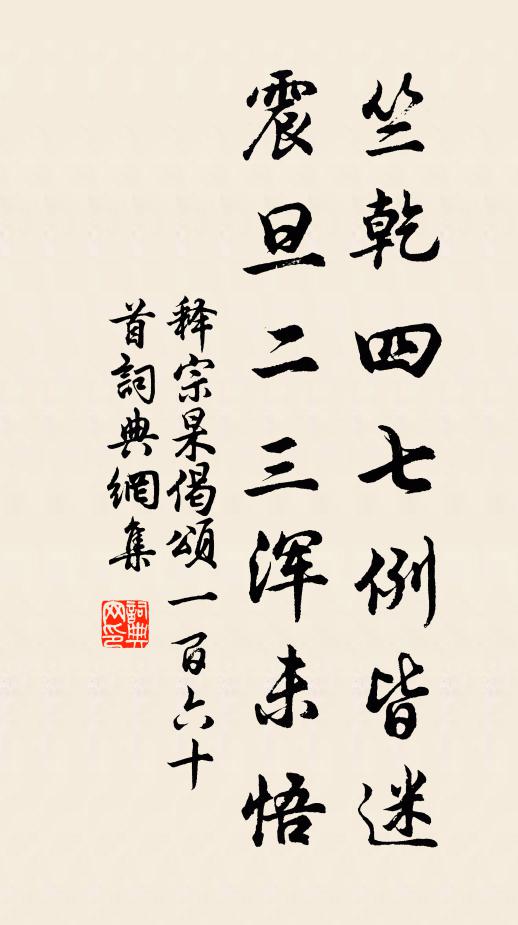 竺乾四七例皆迷
震旦二三浑未悟
释宗杲偈頌一百六十
首詞典網集
詞典
网印